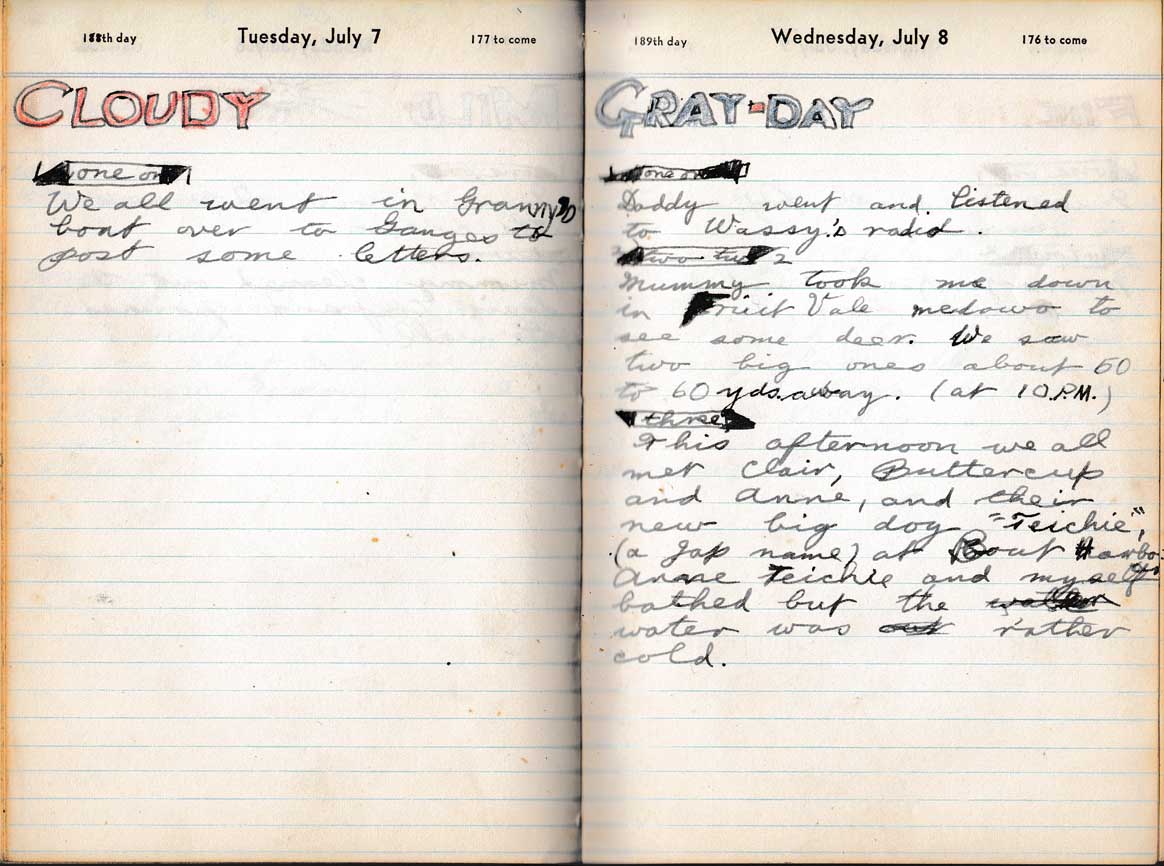 188th day Tuesday, July 7 177 to come
CLOUDY
one on
We all went in Granny's
boat over to Ganges to
post some letters.
189th day Wednesday, July 8 176 to come
GRAY-DAY
one on
Daddy went and listened
to Wassy's radio.
two tw 2
Mummy took me down
in Fruit Vale medows to
see some deer. We saw
two big ones about 50
to 60 yds. away. (at 10 P.M.)
three
This afternoon we all
met Clair, Buttercup
and Anne, and their
new big dog "Teichie",
(a Jap name) at Bout Harbo
Anne Teichie and myself
bathed but the
water was rather
cold.